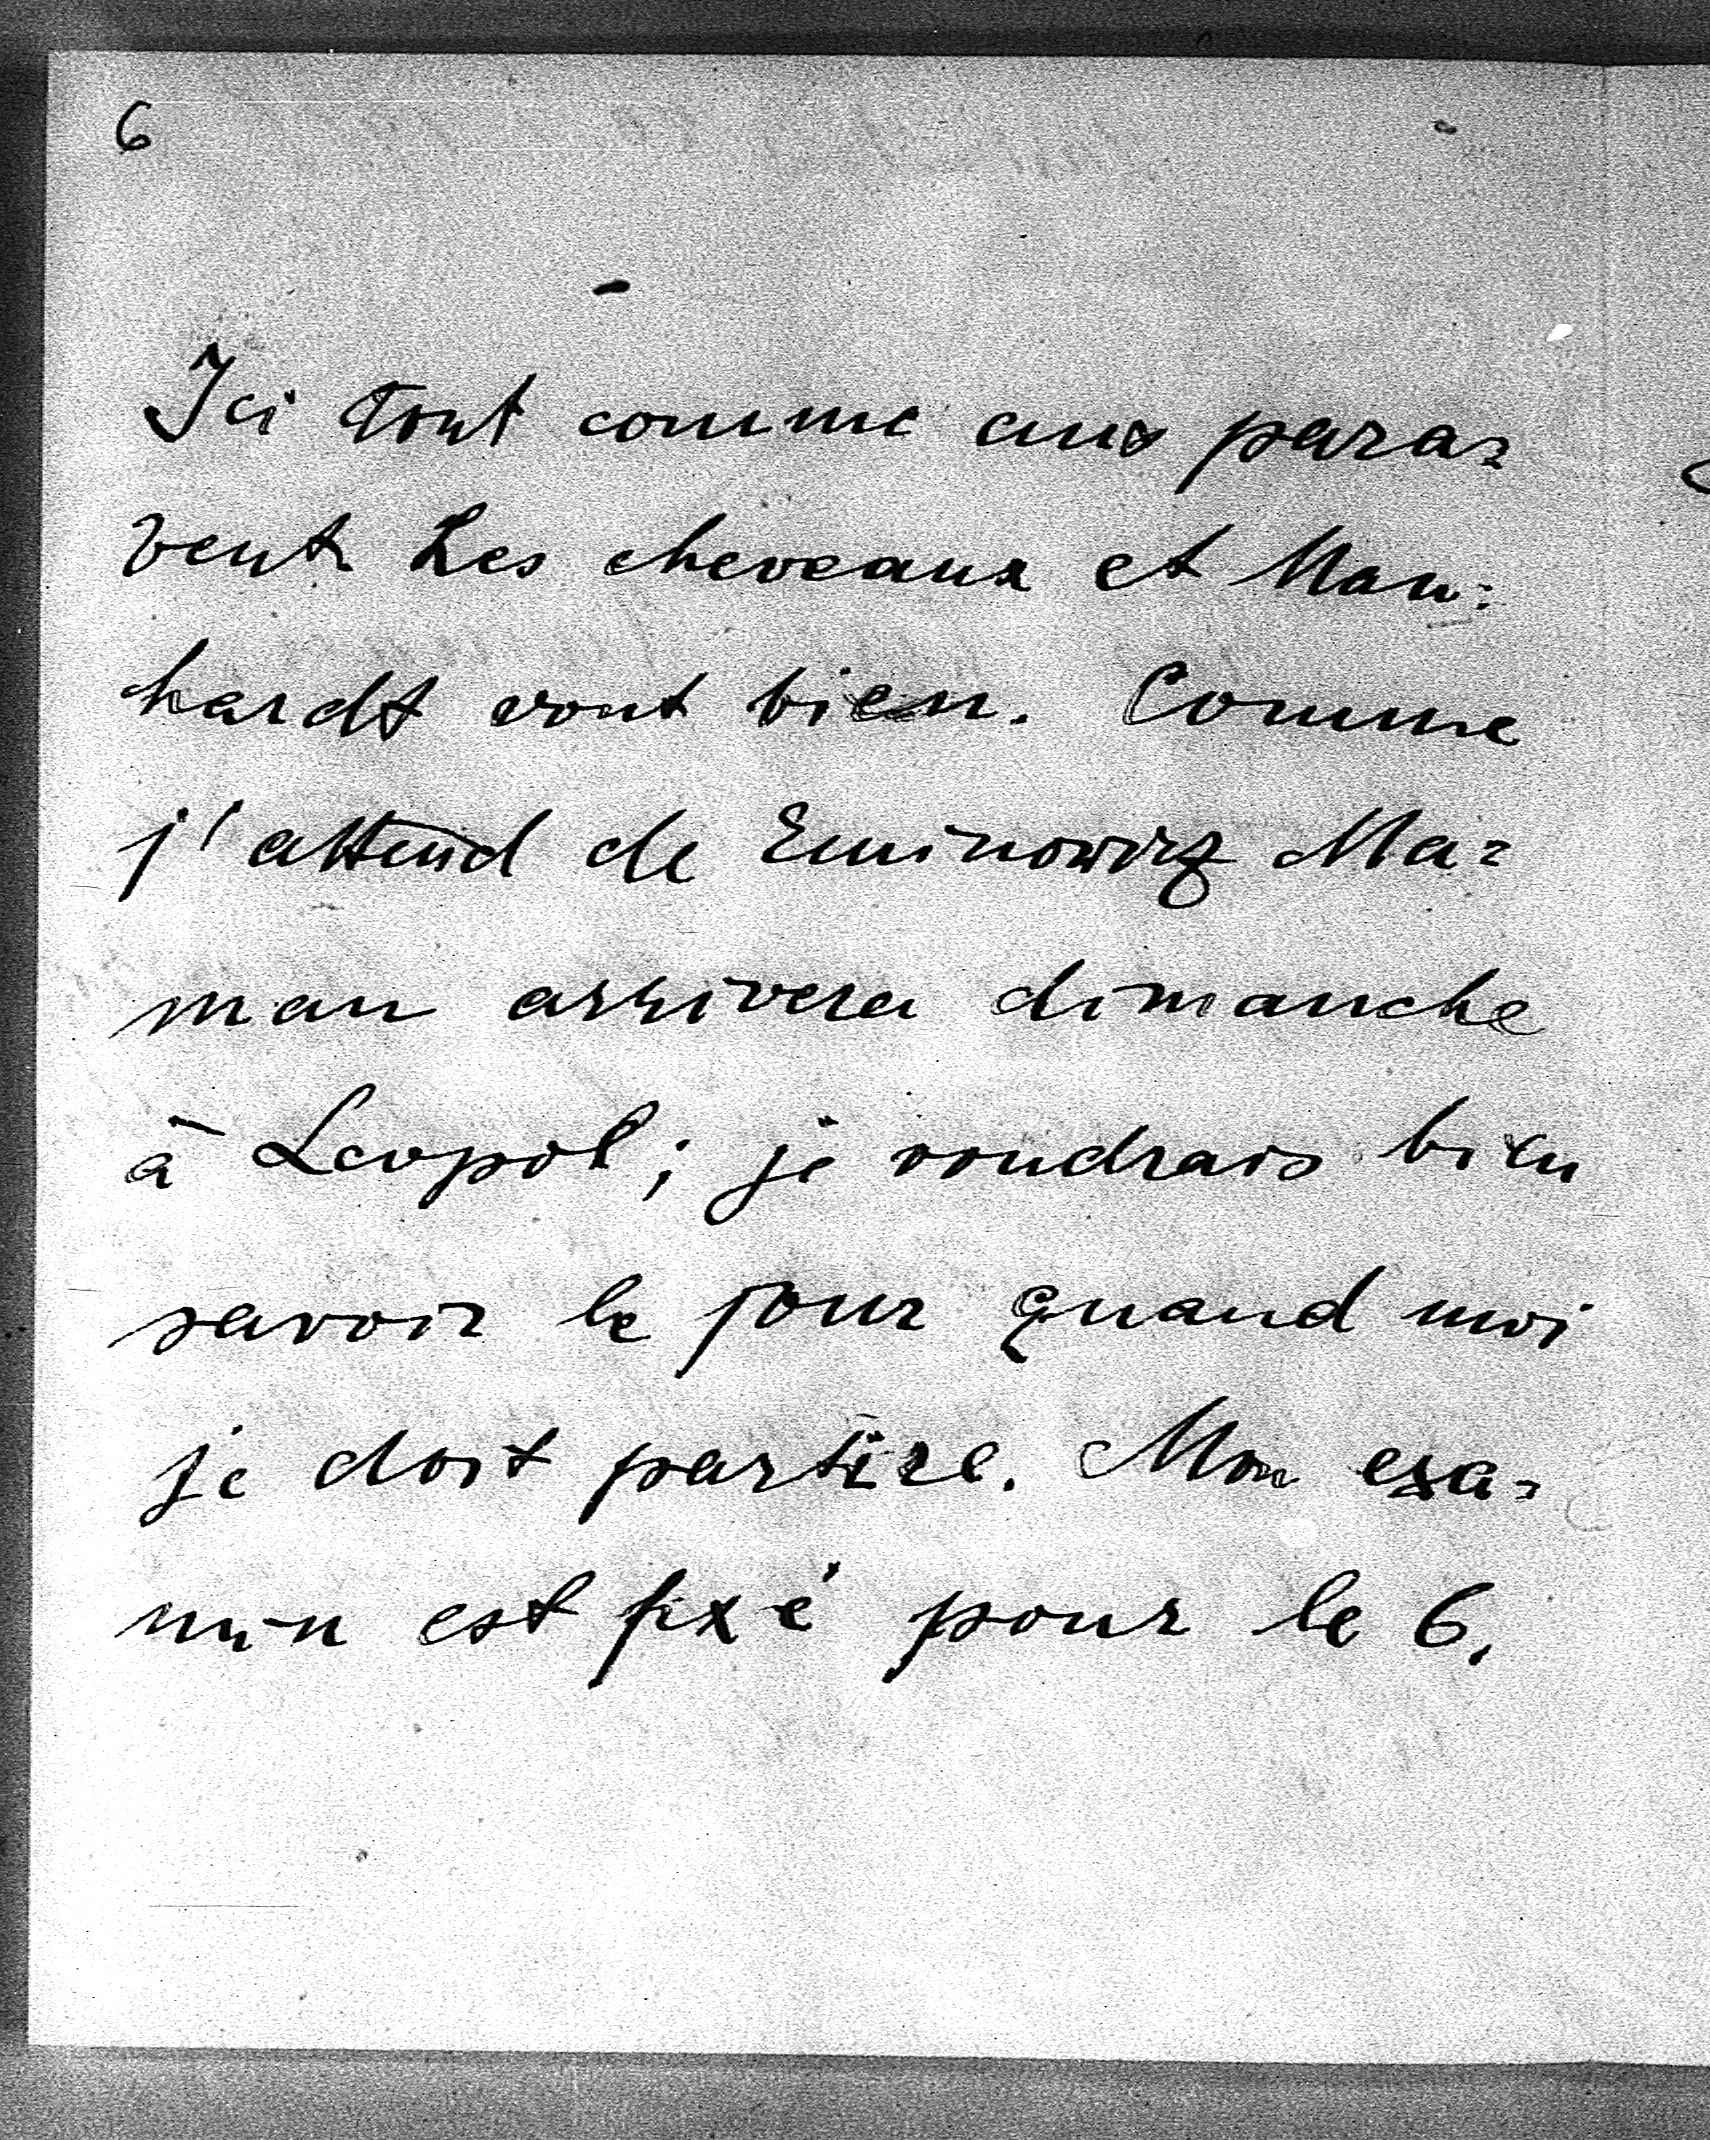 6
Ici tout comme aux para=
vent Les cheveaux et Man=
hardt vont bien. Comme
j'attend de Eminowicz Ma=
man arrivera dimanche
à Leopol; je voudrais bien
savoir le jour quand moi
je doit partire. Mon exa=
men est fixé pour le 6.